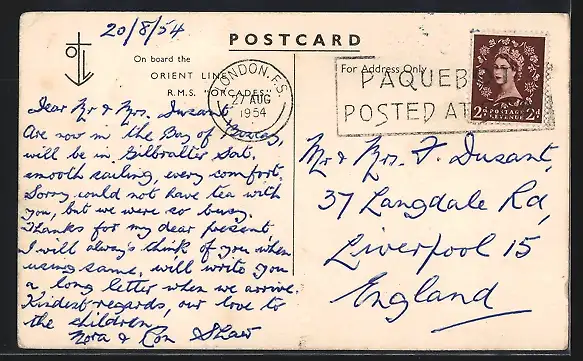 20/8/54
POSTCARD
On board the
ORIENT LINE
R.M.S. "ORCADES"
For Address Only
LONDON F.S.
27 AUG
1954
PAQUEB
POSTED AT
2D POSTAGE 2D
REVENUE
Dear Mr & Mrs. Dusant,
Are now in the Bay of Biscay,
will be in Gilbralter Sat.
smooth sailing, every comfort.
Sorry could not have tea with
you, but we were so busy.
Thanks for my dear present
I will always think of you when
using same, will write you
a long letter when we arrive.
Kindest regards, our love to
the children,
Nora & Ron Shaw
Mr & Mrs. F. Dusant,
37 Langdale Rd,
Liverpool 15
England